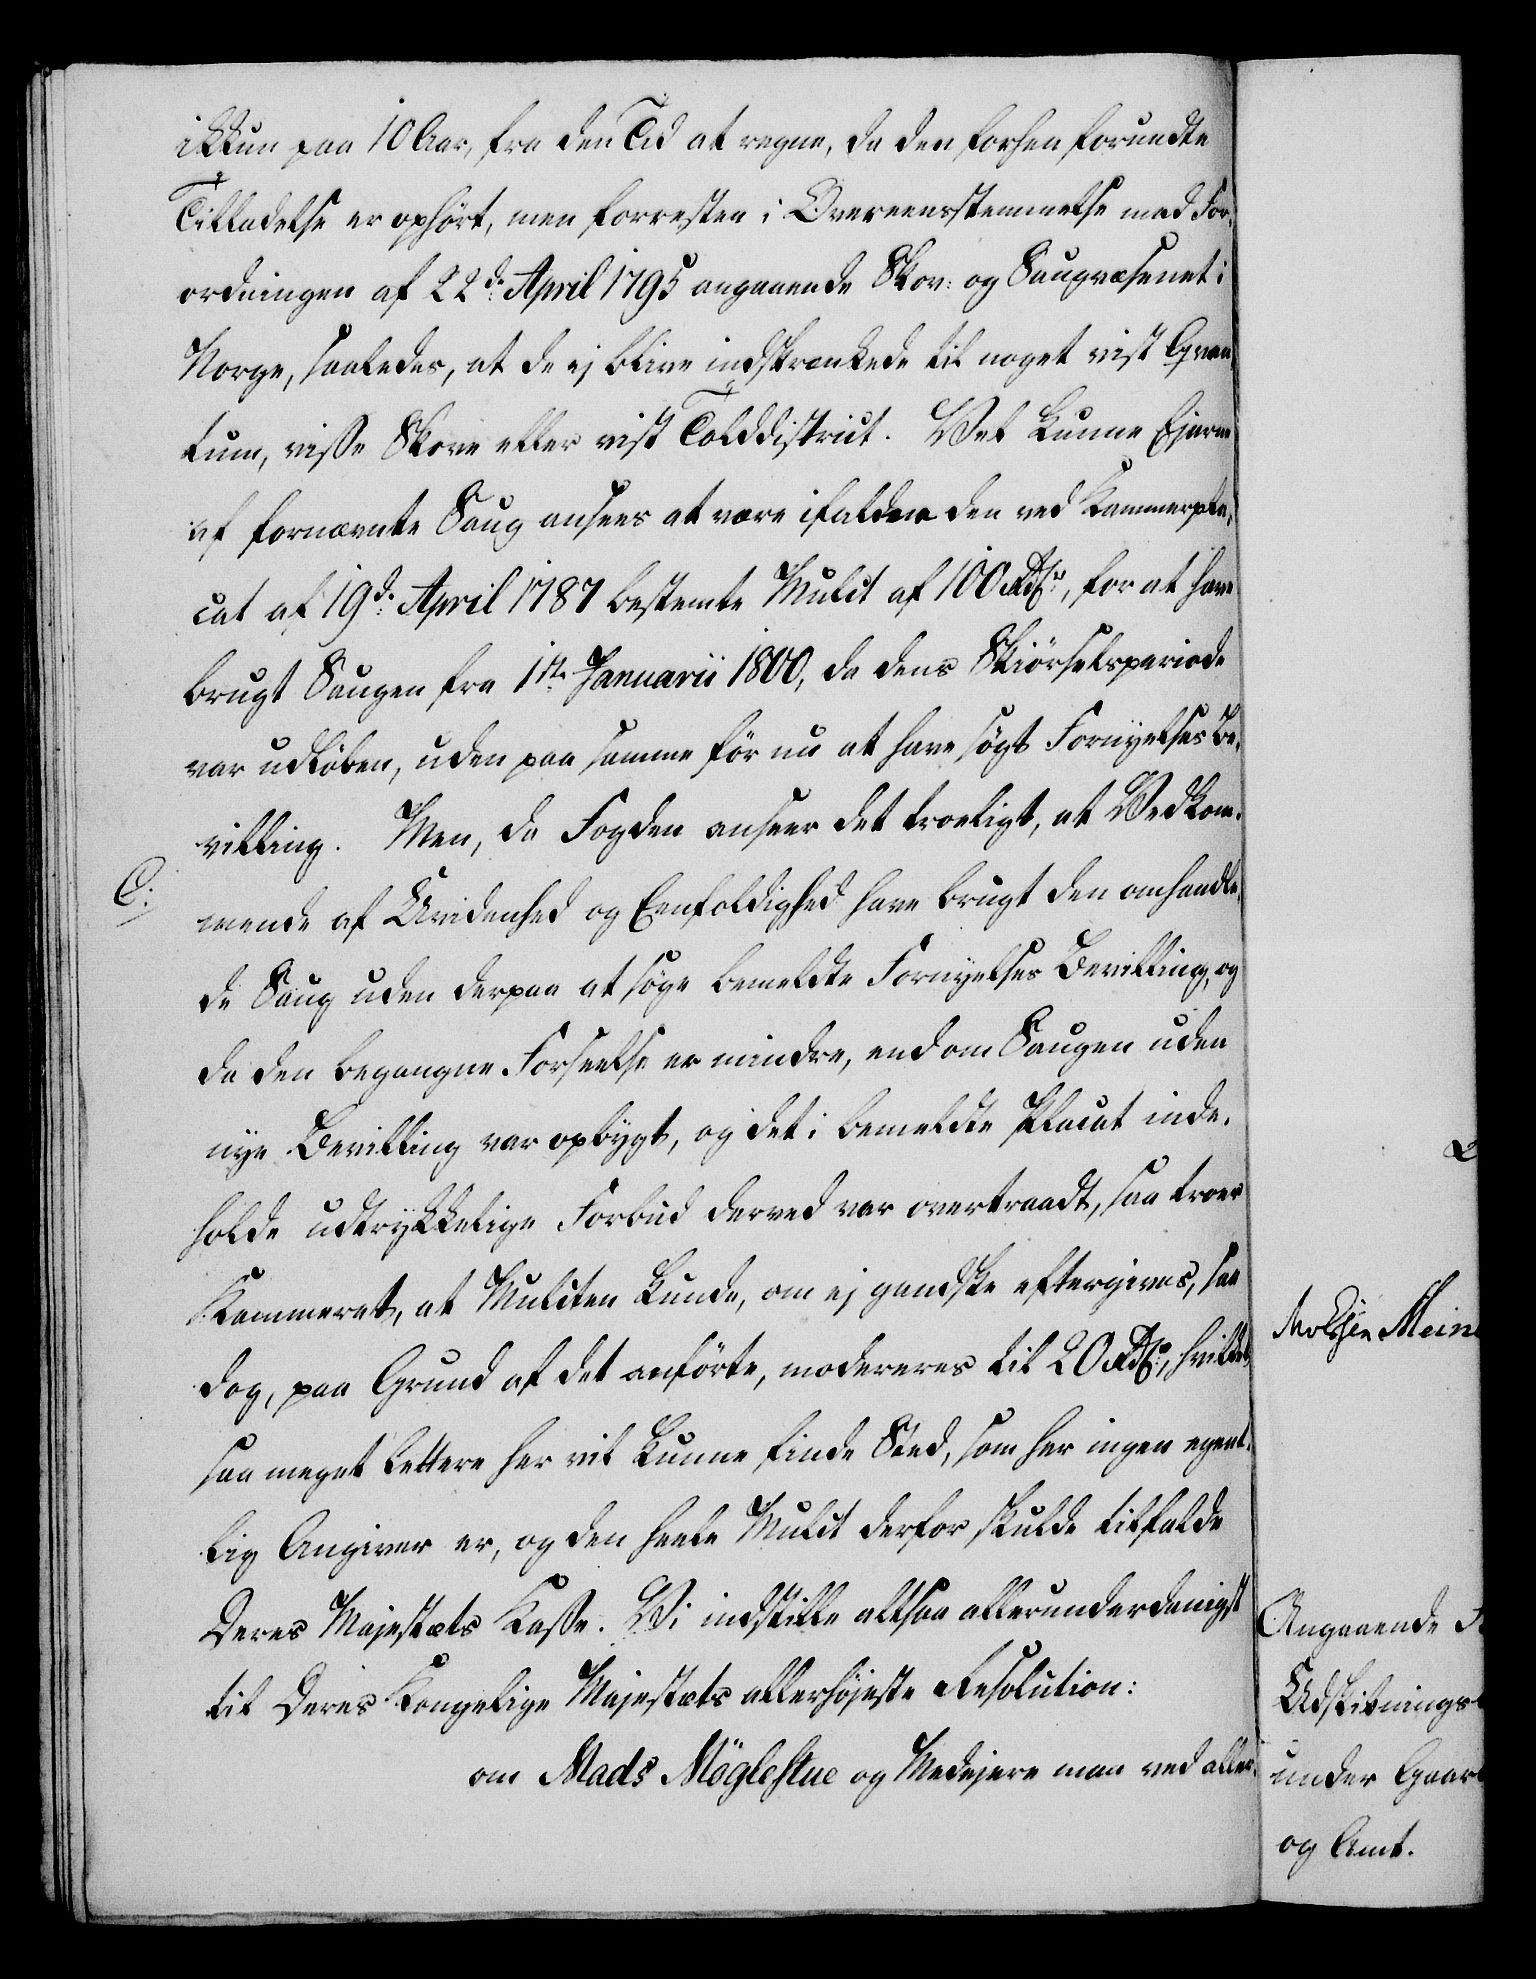 ikkun paa 10 Aar, fra den Tid at regne, da den forhen forundte
Tilladelse er ophørt, men forresten i Overeensstemmelse med For-
ordningen af 22de April 1795 angaaende Skov- og Saugvæsenet i
Norge, saaledes, at de ej blive indskrænkede til noget vist Qvan
tum, visse Skove eller vist Tolddistrict. Vel kunne Ejerne
af fornævnte Saug ansees at være ifaldne den ved Kammerpla-
cat af 19de April 1787 bestemte Mulct af 100 Rdlr, for at have
brugt Saugen fra 1ste Januarii 1800, da dens Skiörselsperiode
var udløben, uden paa samme før nu at have søgt Fornyelses Be-
villing. Men, da Fogden anseer det troeligt, at Vedkom-
C:
mende af Uvidenhed og Eenfoldighed have brugt den omhandle-
de Saug uden derpaa at søge bemeldte Fornyelses Bevilling, og
da den begangne Forseelse er mindre, end om Saugen uden
nye Bevilling var opbygt, og det i bemeldte Placat inde-
holde udtrykkelige Forbud derved var overtraadt, saa troer
Kammeret, at Mulcten kunde, om ej gandske eftergives, saa
dog, paa Grund af det anførte, modereres til 20 Rdlr, hvilket
saa meget lettere her vil kunne finde Sted, som her ingen egent-
lig Angiver er, og den heele Mulct derfor skulde tilfalde
Deres Majestæts Kasse. Vi indstille altsaa allerunderdanigst
til Deres Kongelige Majestæts allerhøjeste Resolution:
om Mads Möglestue og Medejere maa ved aller-
Mein
Angaaende
Udskibnings
under Gaar
og Amt.